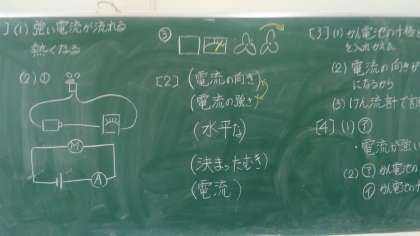 ](1) 強い電流が流れる
熱くなる
(2)①
M
A
③
[2](電流の向き)
(電流の強さ)
(水平な)
(決まったむき)
(電流)
[3](1) かん電池の十極と
を入れかえる
(2) 電流の向きが
になるから
(3) けん流計で
[4](1)㋐
・電流が強い
(2)㋐かん電池の
㋑かん電池の